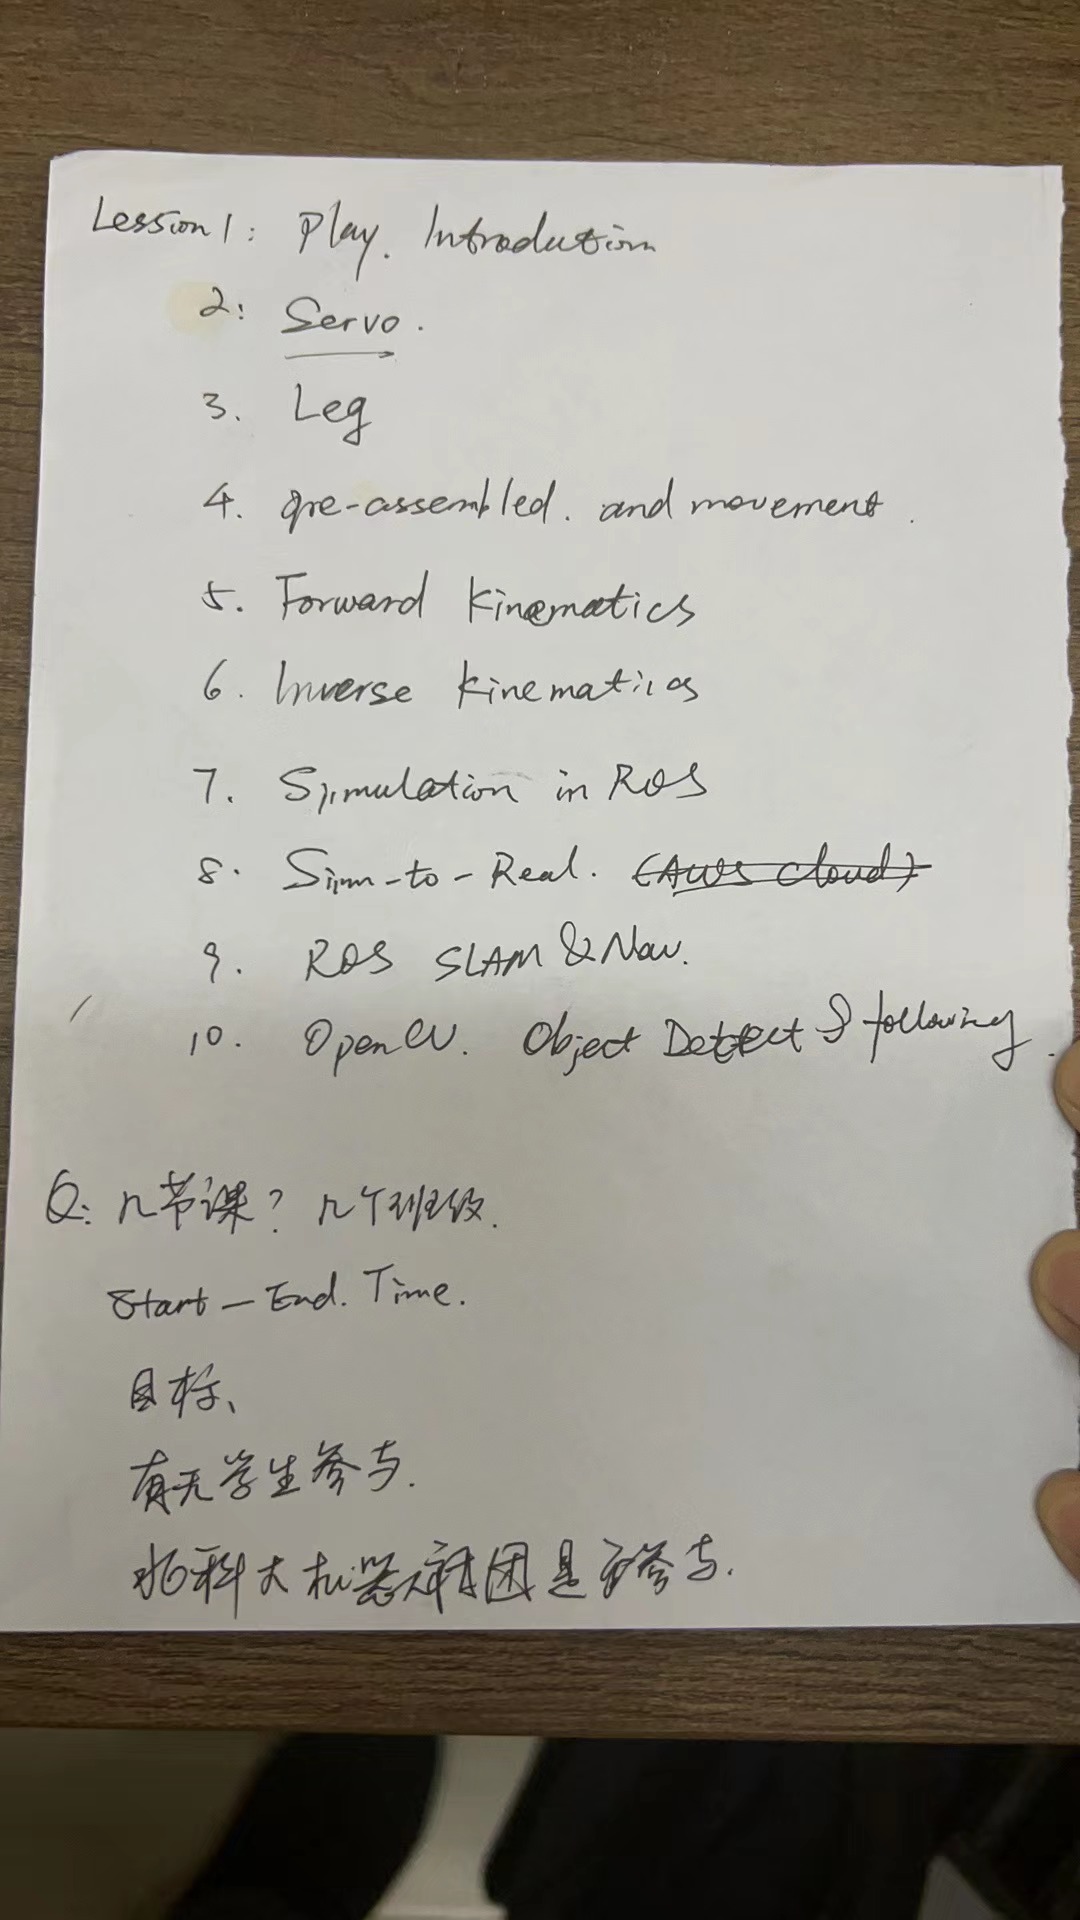 Lesson 1: Play. Introdution
2: Servo.
3. Leg
4. pre-assembled. and movement.
5. Forward Kinematics
6. Inverse Kinematics
7. Simulation in ROS
8. Sim-to-Real. (AWS cloud)
9. ROS SLAM & Nav.
10. OpenCV. Object Detect & following.
Q: 几节课? 几个班级.
Start - End. Time.
目标、
有无学生参与.
科大机器人社团是否参与.